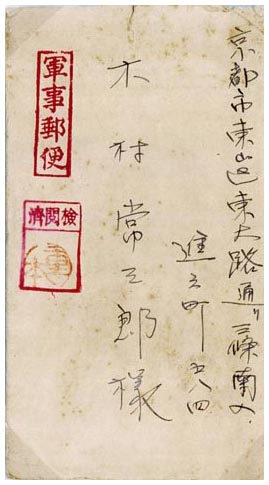 京都市東山区東大路通り三條南入
進之町五八四
木村常三郎様
軍事郵便
検閲濟